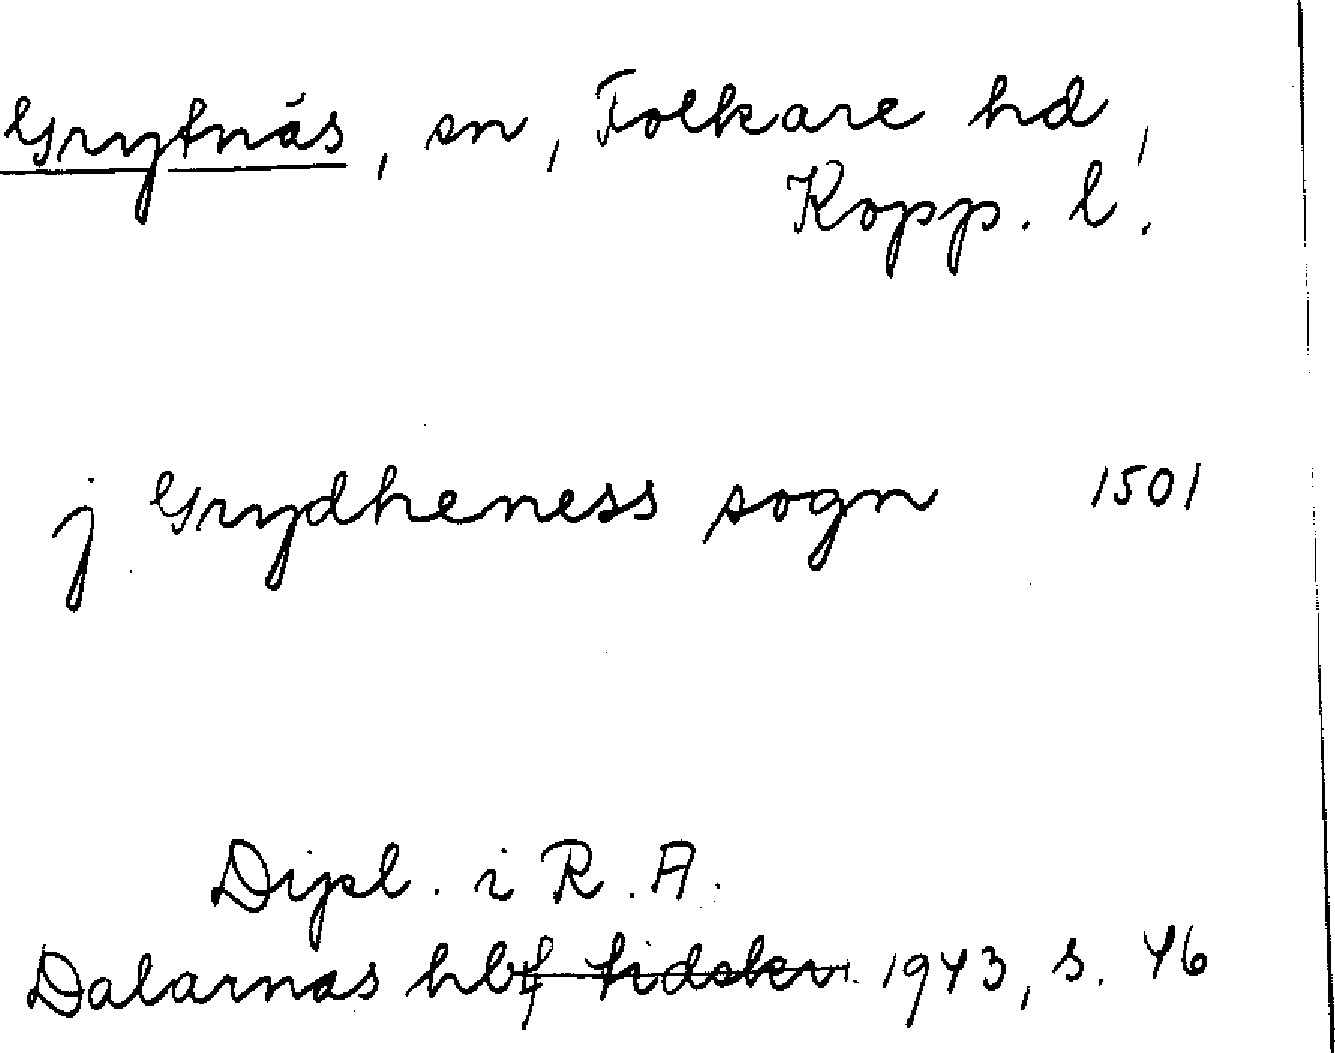 Grytnäs, sn, Folkare hd,
Kopp. l.
j Grydheness sogn 1501
Dipl. i R.A.
Dalarnas hbf tidskr. 1943, s. 46